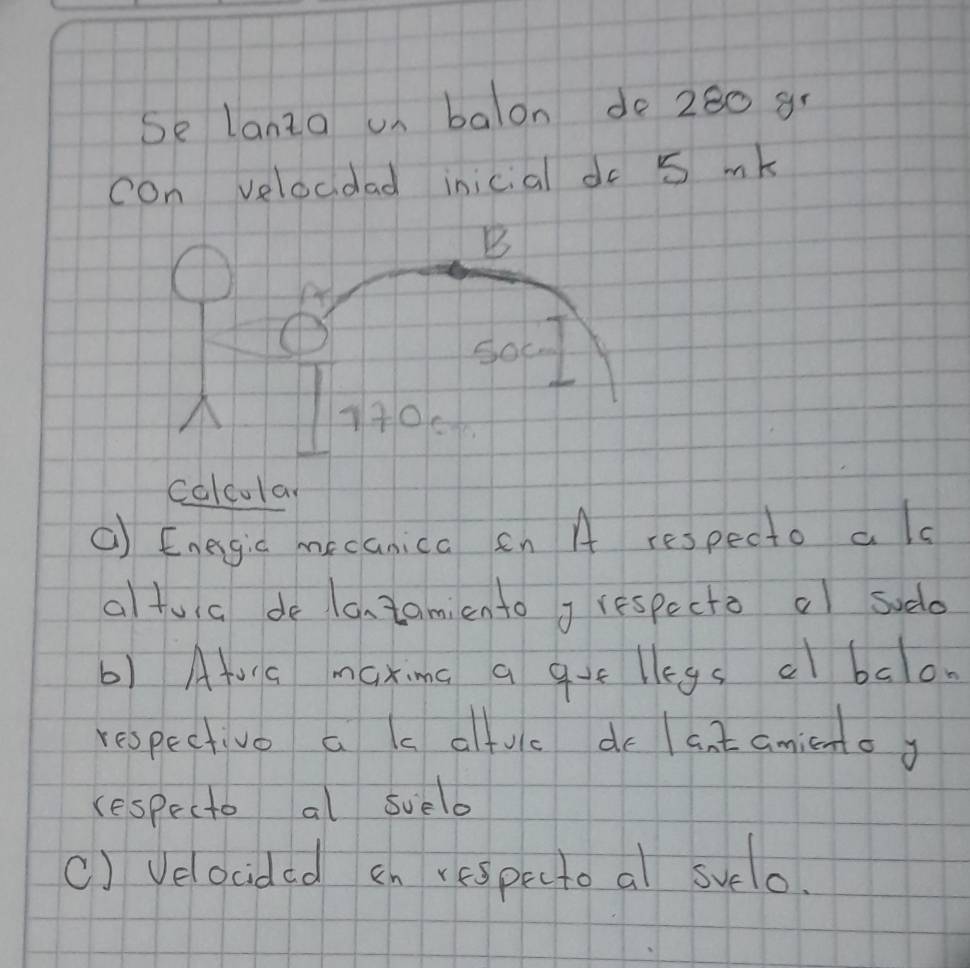 Se lanza un balon de 280 gr
con velocidad inicial de 5 m/s
B
A
50c
170c
Calcular
a) Energia mecanica en A respecto a la
altura de lanzamiento y respecto al suelo
b) Atura maxima a que llega el balon
respectivo a la altura de lanzamiento y
respecto al suelo
c) Velocidad en respecto al suelo.